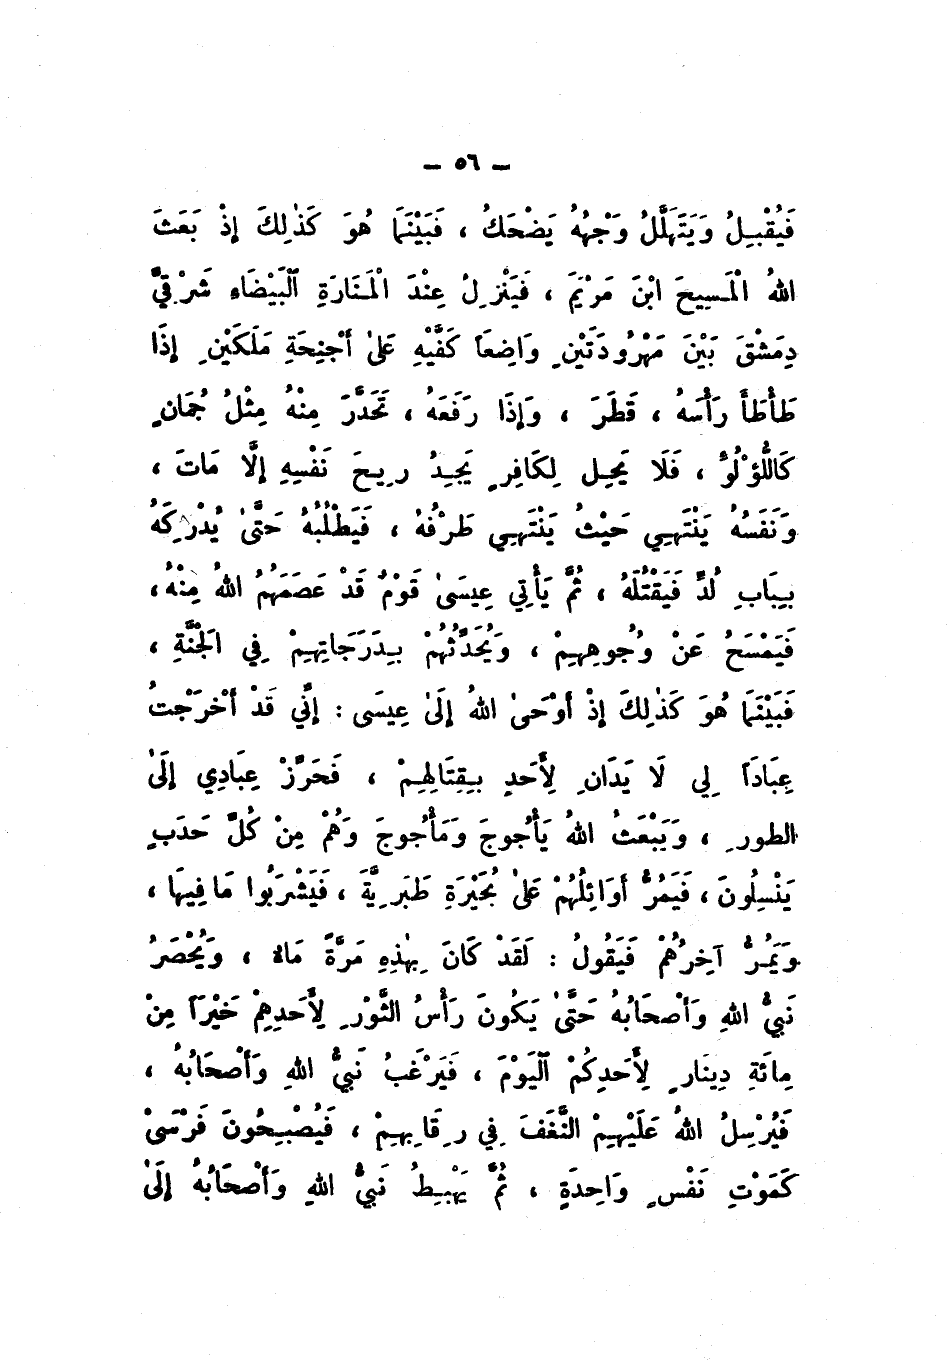 — ٥٦ —
فَيُقْبِلُ وَيَتَهَلَّلُ وَجْهُهُ يَضْحَكُ ، فَبَيْنَمَا هُوَ كَذٰلِكَ إِذْ بَعَثَ
اللهُ الْمَسِيحَ ابْنَ مَرْيَمَ ، فَيَنْزِلُ عِنْدَ الْمَنَارَةِ الْبَيْضَاءِ شَرْقِيَّ
دِمَشْقَ بَيْنَ مَهْرُودَتَيْنِ وَاضِعَاً كَفَّيْهِ عَلىٰ أَجْنِحَةِ مَلَكَيْنِ إِذَا
طَأْطَأَ رَأْسَهُ ، قَطَرَ ، وَإِذَا رَفَعَهُ ، تَحَدَّرَ مِنْهُ مِثْلُ جُمَانٍ
كَاللُّؤْلُوُّ ، فَلَا يَحِل لِكَافِرٍ يَجِدُ رِيحَ نَفْسِهِ إِلَّا مَاتَ ،
وَنَفَسُهُ يَنْتَهِي حَيْثُ يَنْتَهِي طَرْفُهُ ، فَيَطْلُبُهُ حَتَّىٰ يُدْرِكَهُ
بِبَابِ لُدِّ فَيَقْتُلَهُ ، ثُمَّ يَأْتِي عِيسَىٰ قَوْمٌ قَدْ عَصَمَهُمُ اللهُ مِنْهُ،
فَيَمْسَحُ عَنْ وُجُوهِهِمْ ، وَيُحَدِّثُهُمْ بِدَرَجَاتِهِمْ فِي الْجَنَّةِ ،
فَبَيْنَمَا هُوَ كَذٰلِكَ إِذْ أَوْحَىٰ اللهُ إِلَىٰ عِيسَى : إِنِّي قَدْ أَخْرَجْتُ
عِبَادَاً لِي لَا يَدَانِ لِأَحَدٍ بِقِتَالِهِمْ ، فَحَرِّزْ عِبَادِي إِلَىٰ
الطورِ ، وَيَبْعَثُ اللهُ يَأْجُوجَ وَمَأْجُوجَ وَهُمْ مِنْ كُلِّ حَدَبٍ
يَنْسِلُونَ، فَيَمُرُّ أَوَائِلُهُمْ عَلىٰ بُحَيْرَةِ طَبَرِيَّةَ ، فَيَشْرَبُوا مَا فِيهَا ،
وَيَمُرُّ آخِرُهُمْ فَيَقُولُ : لَقَدْ كَانَ بِهٰذِهِ مَرَّةً مَاء ، وَيُحْصَرُ
نَبِيُّ اللهِ وَأَصْحَابُهُ حَتَّىٰ يَكُونَ رَأْسُ الثَّوْرِ لِأَحَدِهِمْ خَيْرَاً مِنْ
مِائَةِ دِينَارٍ لِأَحَدِكُمْ الْيَوْمَ ، فَيَرْغَبُ نَبِيُّ اللهِ وَأَصْحَابُهُ ،
فَيُرْسِلُ اللهُ عَلَيْهِمْ النَّغَفَ فِي رِقَابِهِمْ ، فَيُصْبِحُونَ فَرْسَىٰ
كَمَوْتِ نَفْسٍ وَاحِدَةٍ ، ثُمَّ يَهْبِطُ نَبِيُّ اللهِ وَأَصْحَابُهُ إِلَىٰ